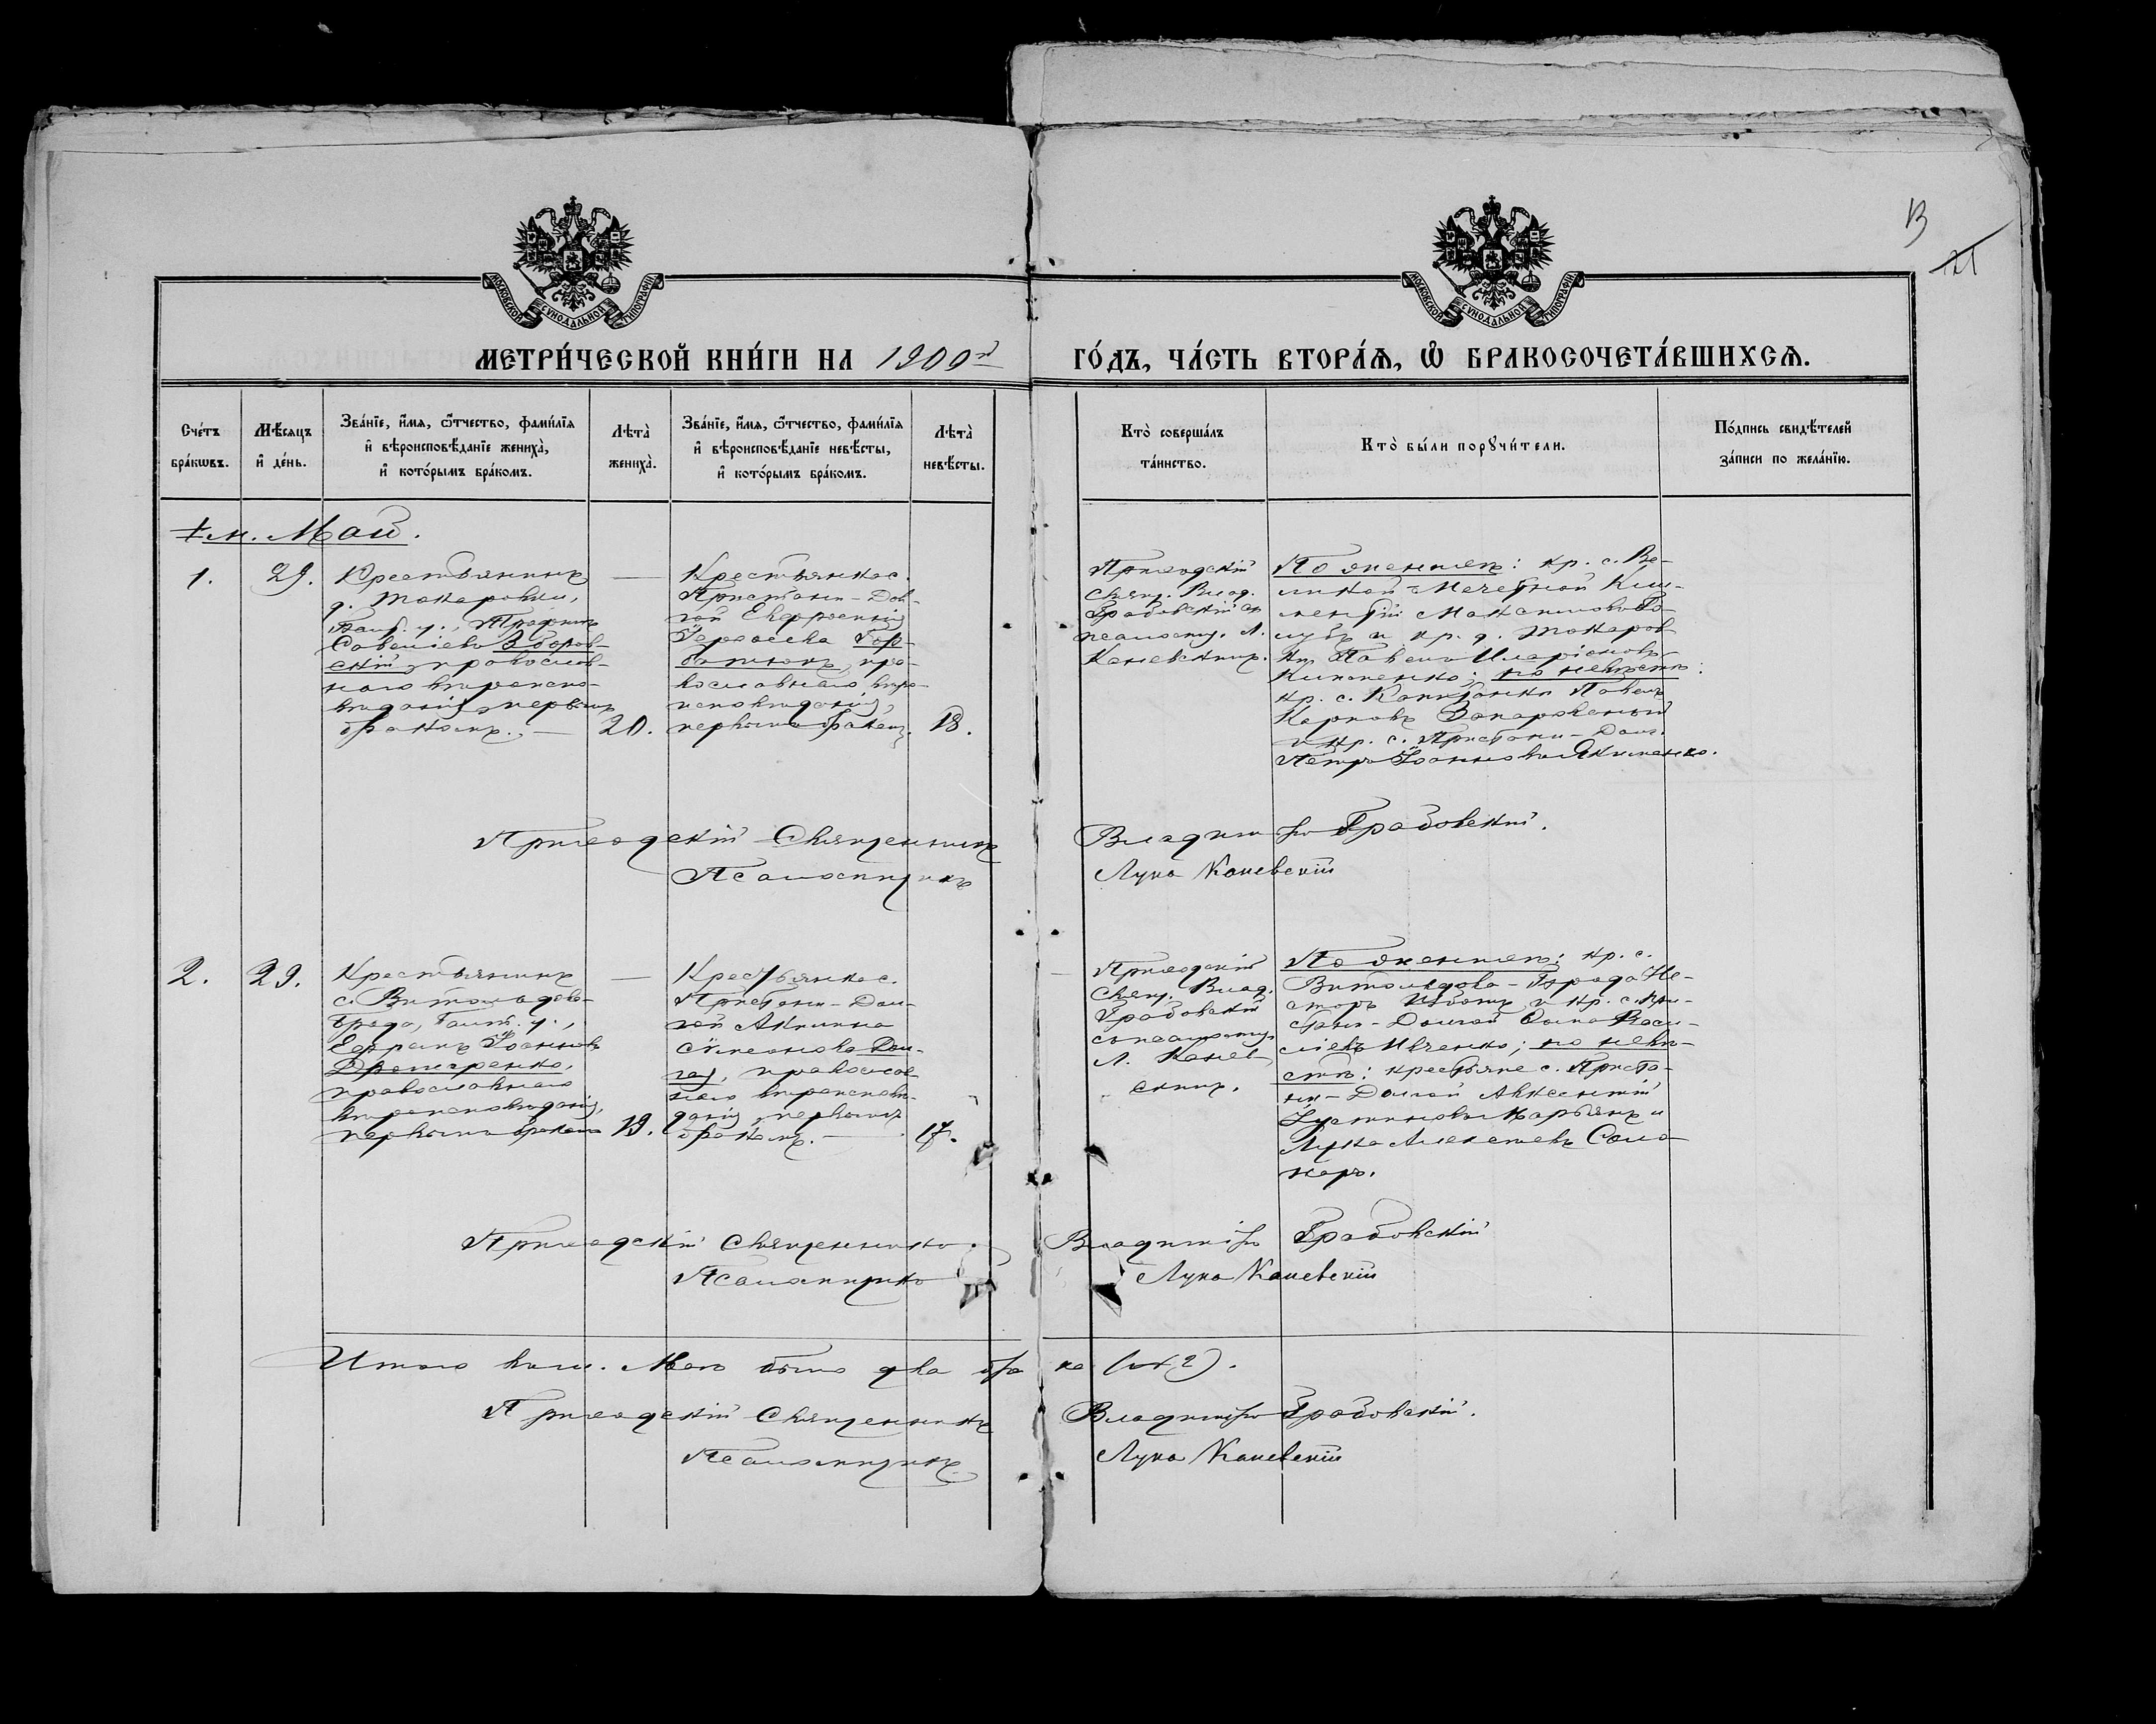 13
121
МОСКОВСКОЙ СУНОДАЛЬНОЙ ТИПОГРАФІИ
МОСКОВСКОЙ СУНОДАЛЬНОЙ ТИПОГРАФІИ
МЕТРИ́ЧЕСКОЙ КНИ́ГИ НА 1900й ГО́ДЪ, ЧА́СТЬ ВТОРА́Ѧ, Ѽ БРАКОСОЧЕТА́ВШИХСѦ.
Сче́тъ
бра́кѡвъ.
Мѣ́сяцъ
и҆ де́нь.
Зва́нїе, и҆́мя, ѻ҆́тчество, фами́лїя
и҆ вѣроисповѣ́данїе жениха̀,
и҆ кото́рымъ бра́комъ.
Лѣта̀
жениха̀.
Зва́нїе, и҆́мя, ѻ҆́тчество, фами́лїя
и҆ вѣроисповѣ́данїе невѣ́сты,
и҆ кото́рымъ бра́комъ.
Лѣта̀
невѣ́сты.
Кто̀ соверша́лъ
та́инство.
Кто̀ бы́ли порꙋчи́тели.
По́дпись свидѣ́телей
за́писи по жела́нїю.
м. Май.
1.
29.
Крестьянинъ
д. Токаровки,
Балт. у., Трофимъ
Савеліевъ Зборов-
скій, православ-
наго вѣроиспо-
вѣданія, первымъ
бракомъ. —
20.
— Крестьянка с.
Пристани-Дол-
гой Евфросинія
Гор-
батюкъ, пра-
вославнаго вѣро-
исповѣданія,
первымъ бракомъ.
18.
Приходскій
Свящ. Влад.
Грабовскій съ
псаломщ. Л.
Каневскимъ.
По женихѣ: кр. с. Ве-
ликой-Мечетной Кли-
ментій Максимовъ Го-
лубъ и кр. д. Токаров-
ки Павелъ Иларіоновъ
Кипоненко; по невѣстѣ:
кр. с. Павелъ
Карповъ Запорожный
и кр. с. Пристани-Долг.
Петръ Іоанновъ Якименко.
Приходскій Священникъ Владиміръ Грабовскій.
Псаломщикъ Лука Каневскій
2.
29.
Крестьянинъ
с. Витольдова-
Брода, Балт. у.,
Ефремъ Іоанновъ
православнаго
вѣроисповѣданія,
первымъ бракомъ
19.
— Крестьянка с.
Пристани-Дол-
гой Акилина
Сѵмеонова Дол-
гая, православ-
наго вѣроисповѣ-
данія, первымъ
бракомъ. —
17.
Приходскій
Свящ. Влад.
Грабовскій
съ псаломщ.
Л. Канев-
скимъ.
По женихѣ: кр. с.
Витольдова-Брода Не-
сторъ и кр. с. При-
стани-Долгой Ѳома Васи-
ліевъ Ивченко; по невѣ-
стѣ: крестьяне с. Приста-
ни-Долгой Авксентій
Іустиновъ Марьянъ и
Лука Алексѣевъ Сама-
наръ.
Приходскій Священникъ Владиміръ Грабовскій
Псаломщикъ Лука Каневскій
Итого въ м. Маѣ было два бра ка (бр. 2).
Приходскій Священникъ Владиміръ Грабовскій.
Псаломщикъ Лука Каневскій